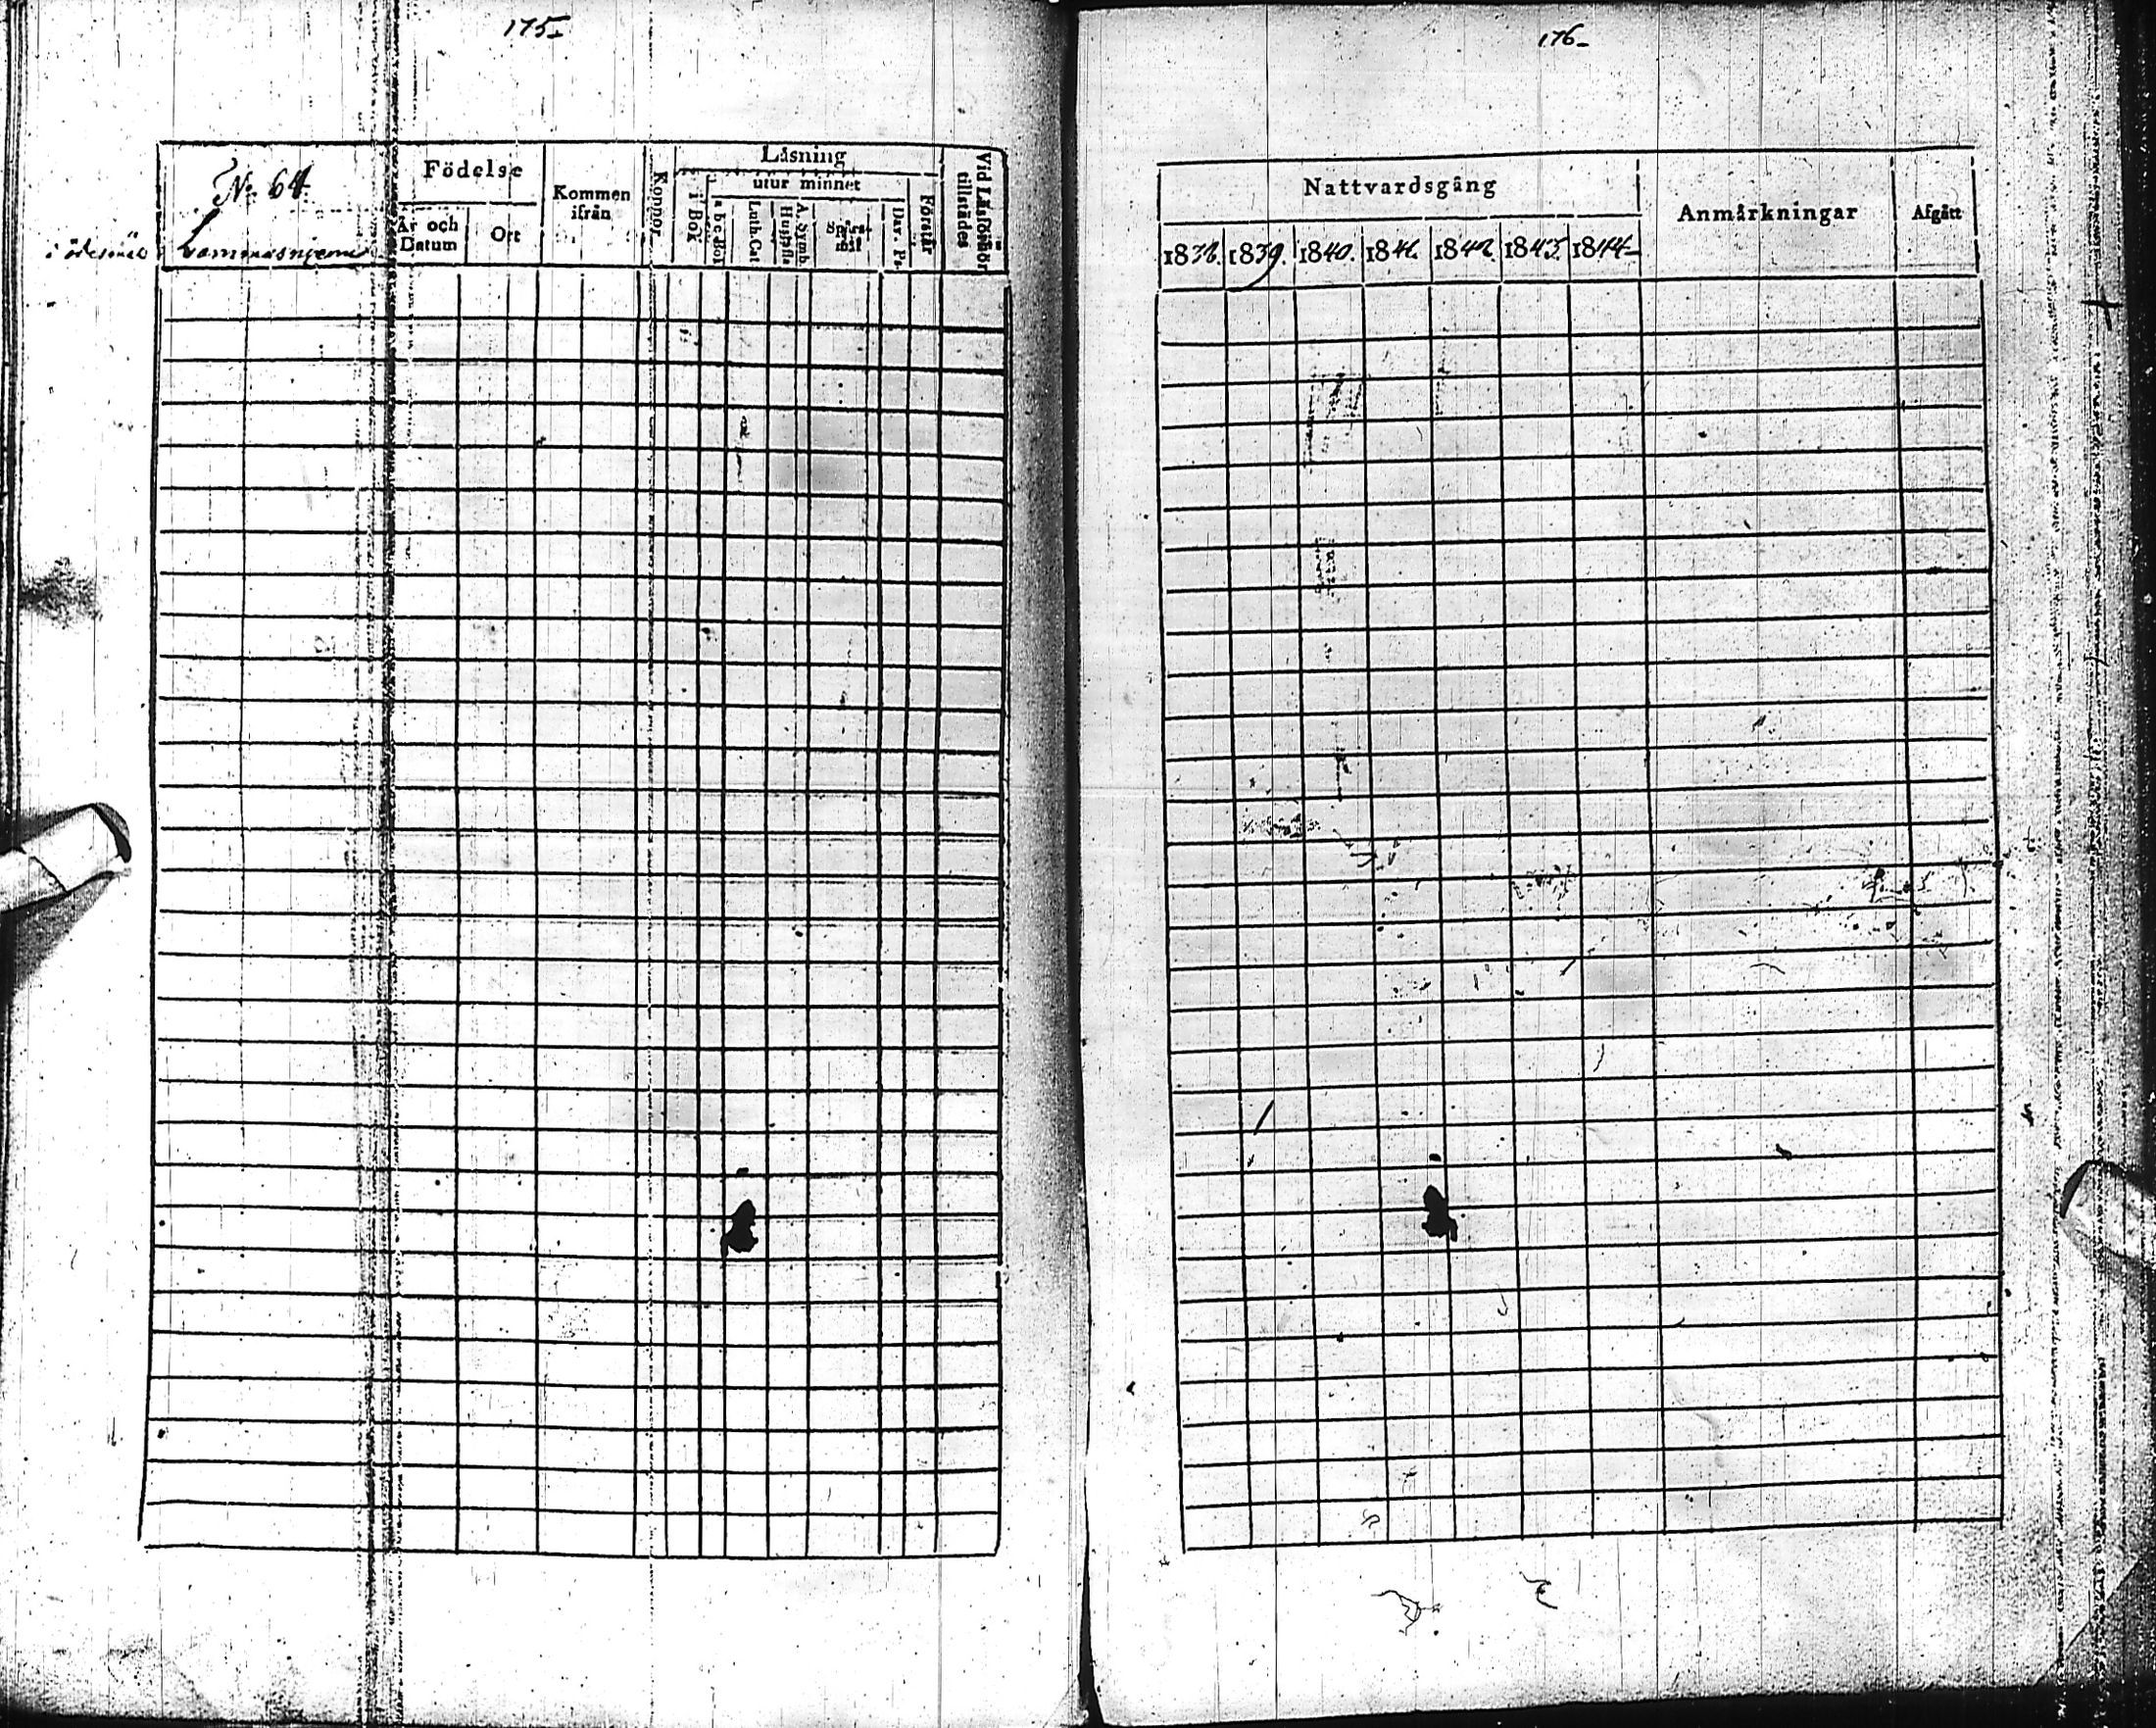 175
No 64.
i ödesmål
Födelse
År och Datum
Ort
Kommen ifrån
Koppor
Läsning
i Bok
utur minnet
a b c Bok
Luth. Cat
A. Symb. Hustafla
Spörsmål
Dav. Ps.
Förstår
Vid Läsförhör tillstädes
176
Nattvardsgång
1838. 1839. 1840. 1841. 1842. 1843. 1844
Anmärkningar
Afgått